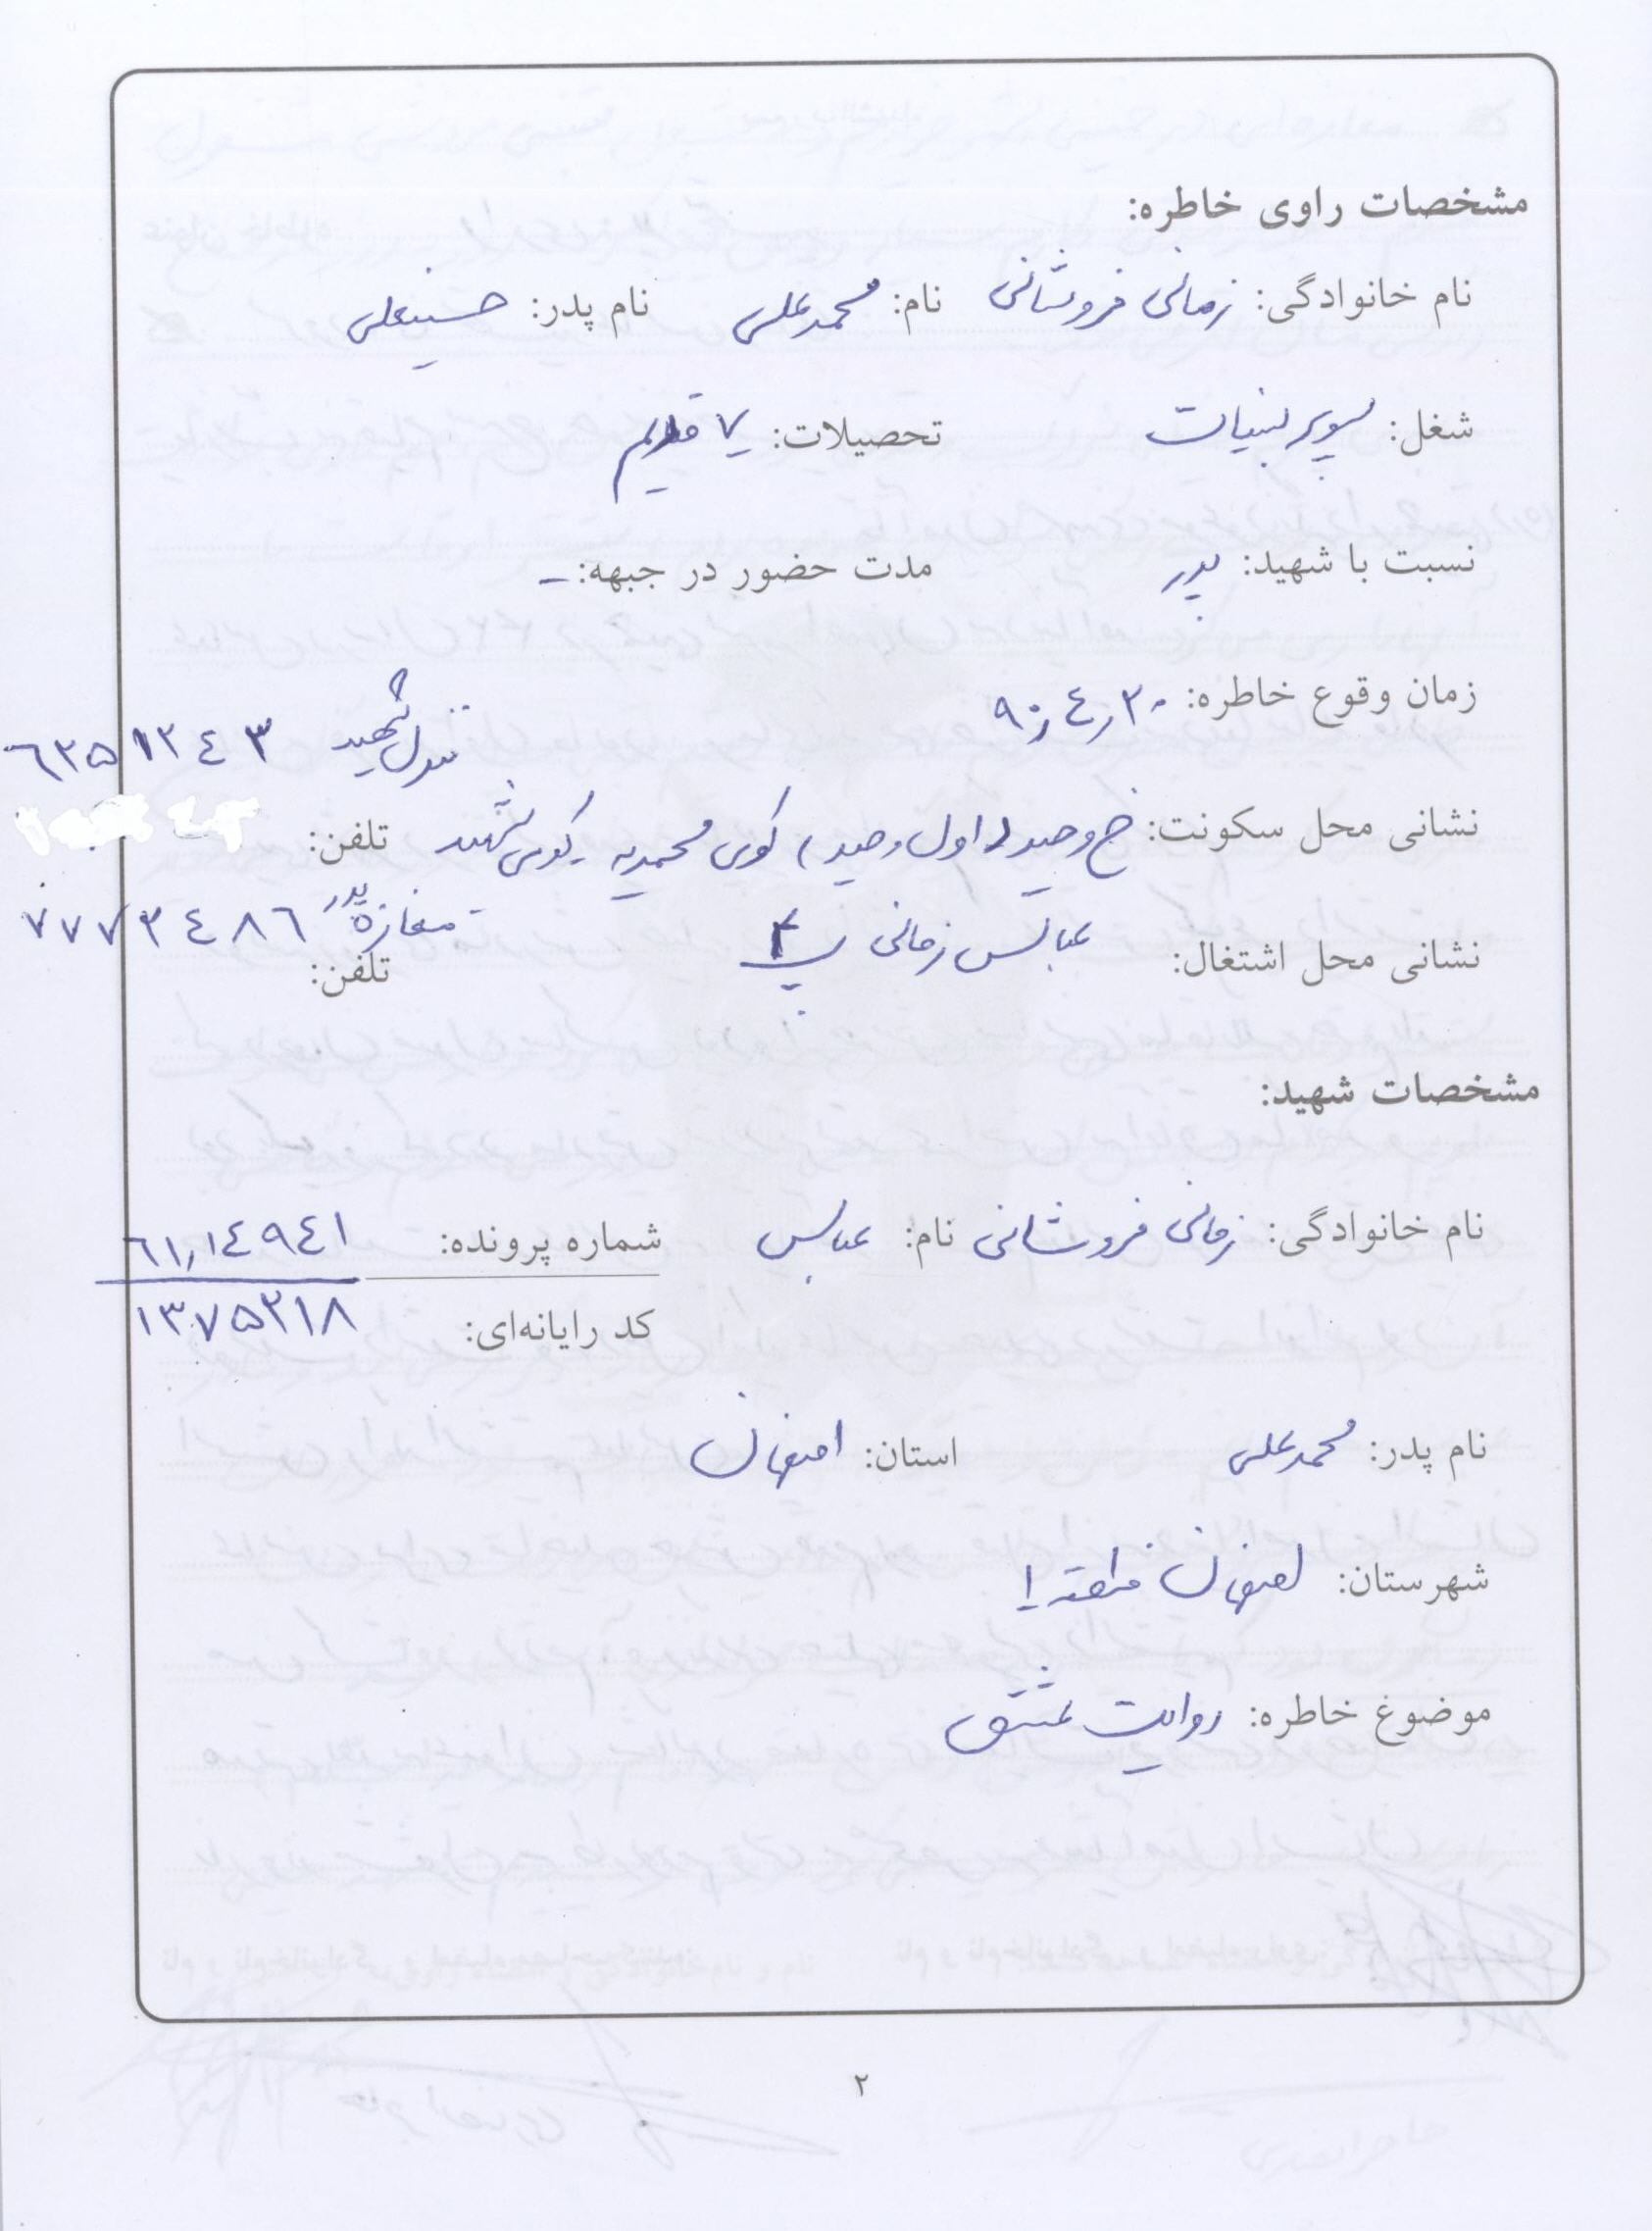 مشخصات راوی خاطره:
نام خانوادگی: زمانی فروشانی نام: محمدعلی نام پدر: حسینعلی
شغل: سوپر لبنیات تحصیلات: ۷ قدیم
نسبت با شهید: پدر مدت حضور در جبهه: -
زمان وقوع خاطره: ۹۰٫۴٫۲۰
منزل شهید ۶۲۵۱۲۴۳
نشانی محل سکونت: خ وحید (اول وحید) کوی محمدیه کوی شهید تلفن:
عباس زمانی پ ۴
مغازه پدر ۷۷۷۳۴۸۶
نشانی محل اشتغال: تلفن:
مشخصات شهید:
نام خانوادگی: زمانی فروشانی نام: عباس شماره پرونده: ۶۱٫۱۴۹۴۱
کد رایانه‌ای: ۱۳۷۵۲۱۸
نام پدر: محمدعلی استان: اصفهان
شهرستان: اصفهان منطقه ۱
موضوغ خاطره: روایت عشق
۲